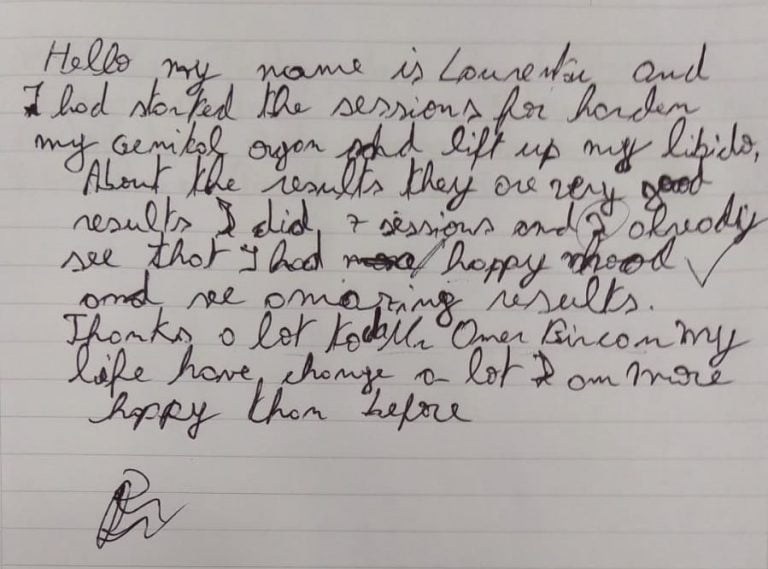 Hello my name is Laurentiu and
I had started the sessions for harden
my genital organ and lift up my libido,
About the results they are very good
results I did 7 sessions and I already
see that I had happy mood
and see amazing results.
Thanks a lot to Mr Omer Bincom my
life have change a lot I am more
happy than before